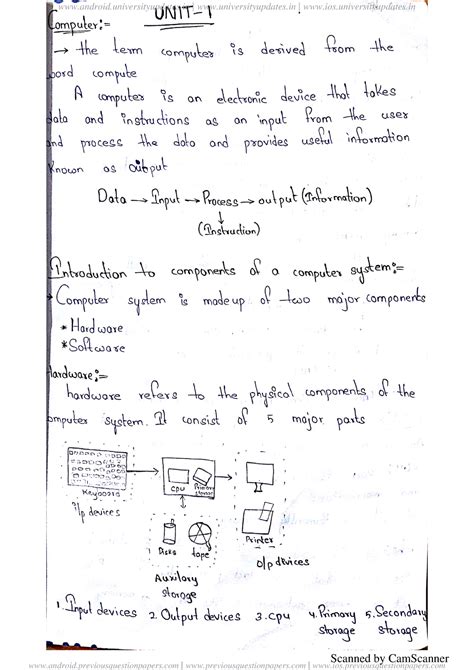 www.android.universityupdates.in | www.universityupdates.in | www.ios.universityupdates.in
UNIT-1
Computer:=
→ the term computer is derived from the
word compute
A computer is an electronic device that takes
data and instructions as an input from the user
and process the data and provides useful information
known as output
Data → Input → Process → output (Information)
↓
(Instruction)
Introduction to components of a computer system:=
Computer system is made up of two major components
* Hardware
* Software
Hardware:=
hardware refers to the physical components of the
computer system. It consist of 5 major parts
Keyboard
i/p devices
CPU
Primary
storage
Disks
tape
Auxilary
storage
Printer
o/p devices
1. Input devices 2. Output devices 3. cpu 4. Primary storage 5. Secondary storage
Scanned by CamScanner
www.android.previousquestionpapers.com | www.previousquestionpapers.com | www.ios.previousquestionpapers.com